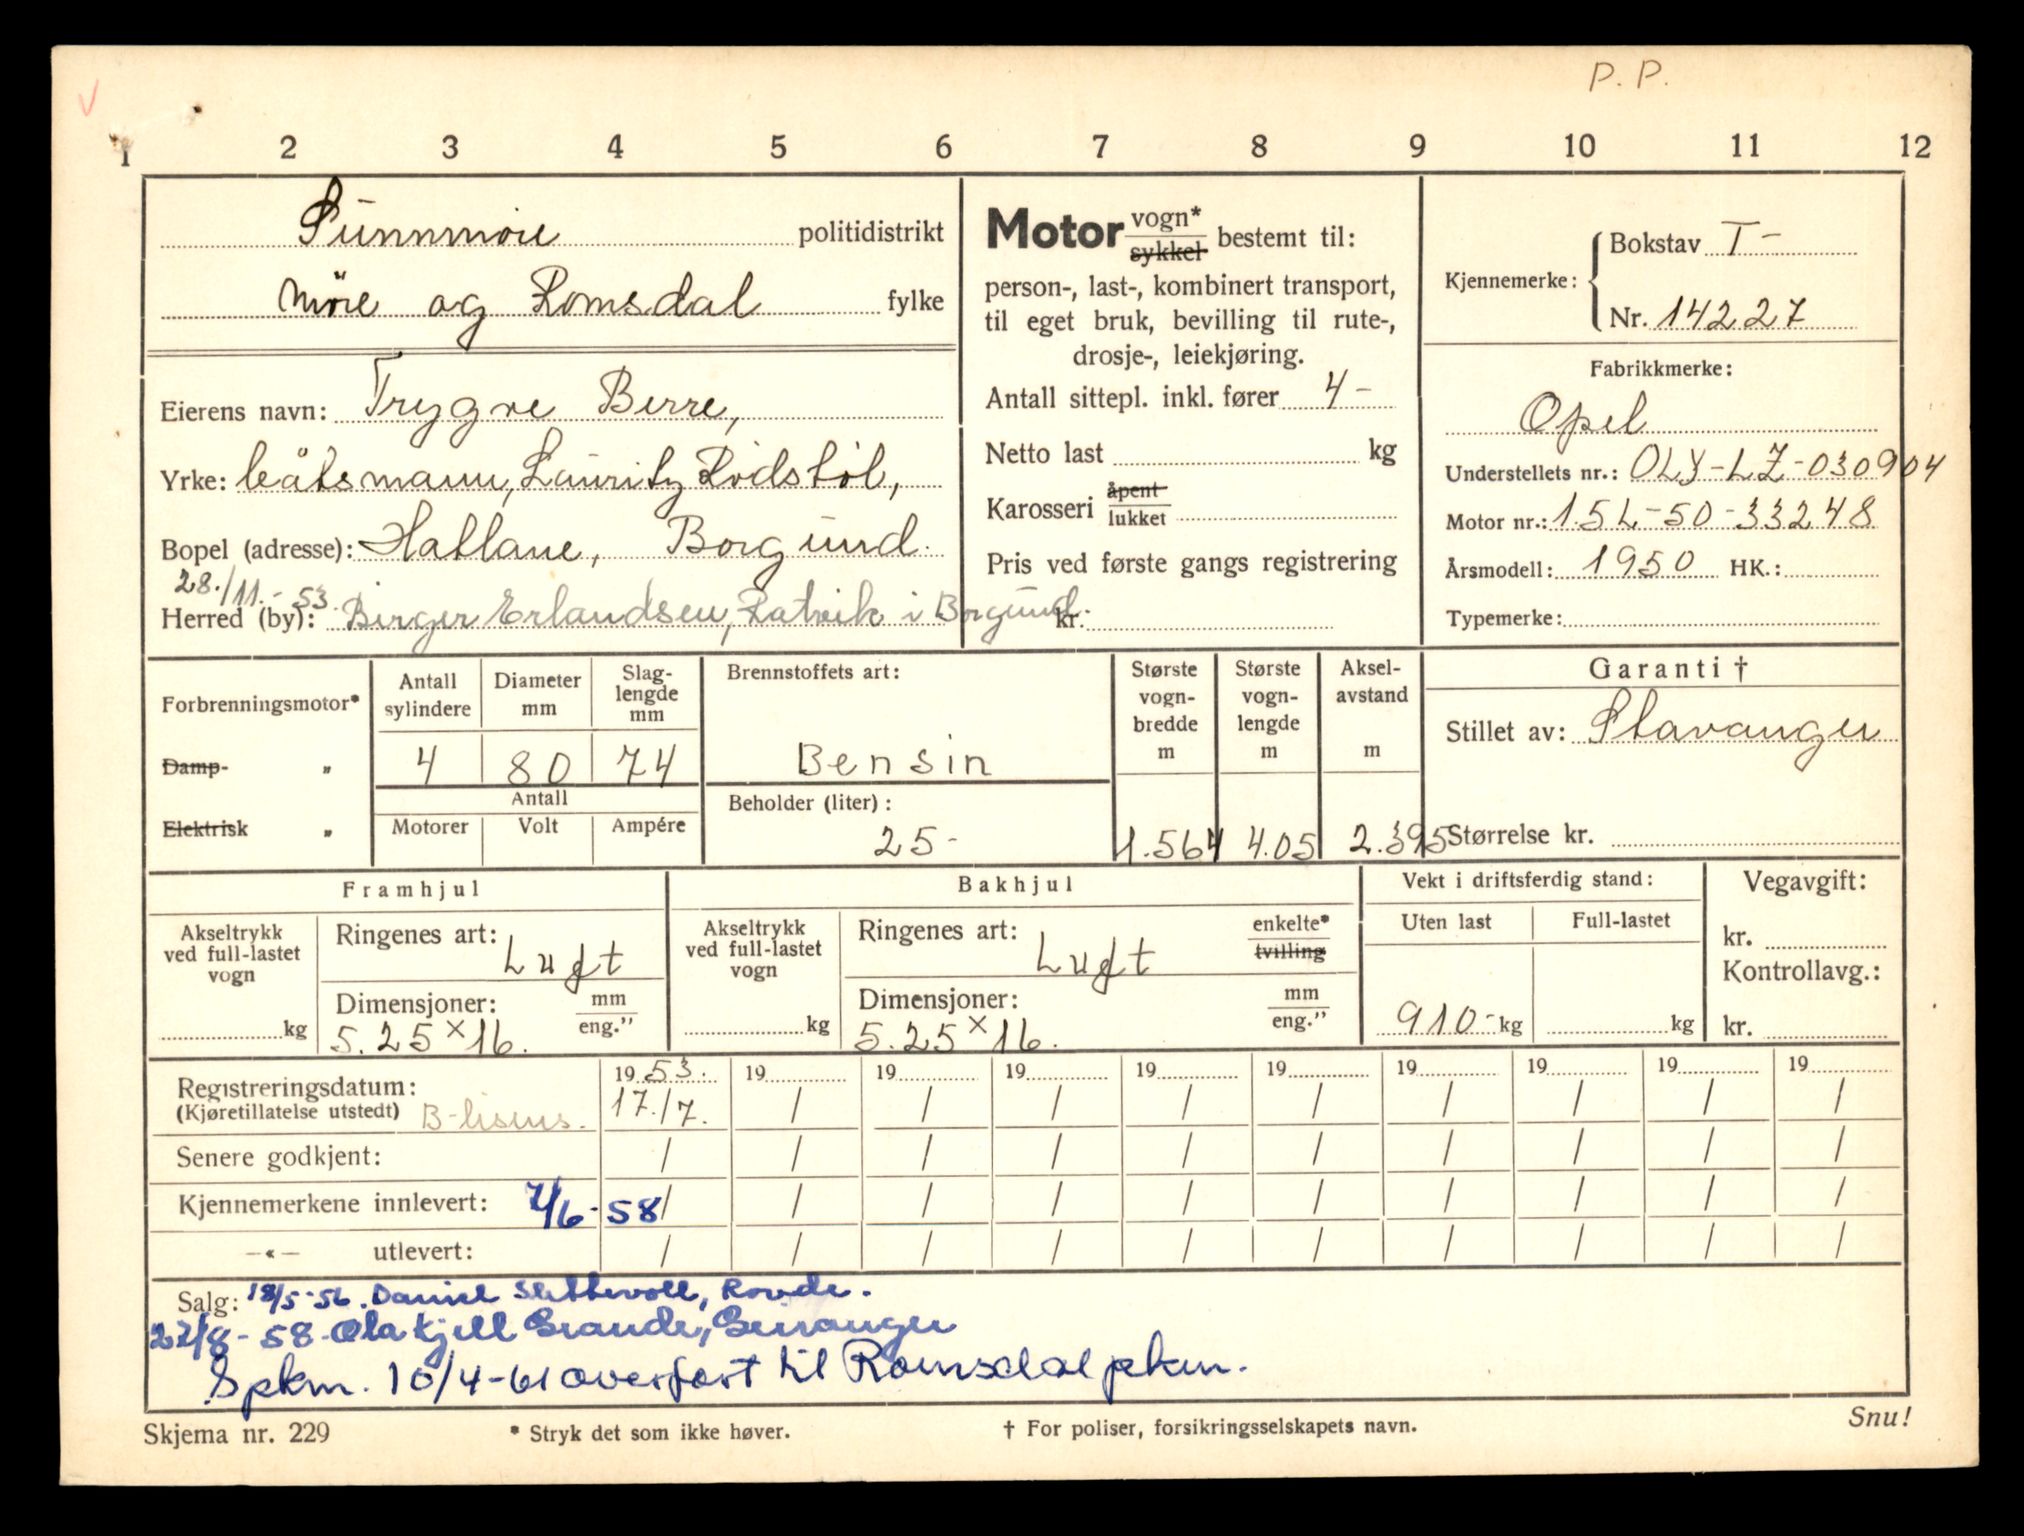 P. P.
1 2 3 4 5 6 7 8 9 10 11 12
Sunnmøre politidistrikt
Møre og Romsdal fylke
Eierens navn: Trygve Berre,
Yrke: båtsmann, Lauritz Rødstøl,
Bopel (adresse): Hatlane, Borgund.
28./11.-53
Herred (by): Birger Erlandsen, Ratvik i Borgund
Motor vogn* / sykkel bestemt til:
person-, last-, kombinert transport,
til eget bruk, bevilling til rute-,
drosje-, leiekjøring.
Antall sittepl. inkl. fører 4 -
Netto last kg
Karosseri åpent / lukket
Pris ved første gangs registrering
kr.
Kjennemerke: Bokstav T-
Nr. 14227
Fabrikkmerke:
Opel
Understellets nr.: OLY-LZ-030904
Motor nr.: 15L-50-33248
Årsmodell: 1950 HK.:
Typemerke:
Forbrenningsmotor*
Damp- „
Elektrisk „
Antall sylindere
Diameter mm
Slag-lengde mm
4 80 74
Antall
Motorer Volt Ampére
Brennstoffets art:
Bensin
Beholder (liter):
25-
Største vogn-bredde m
Største vogn-lengde m
Aksel-avstand m
1.564 4.05 2.395
Garanti †
Stillet av: Stavanger
Størrelse kr.
Framhjul
Akseltrykk ved full-lastet vogn
kg
Ringenes art: Luft
Dimensjoner: mm / eng.”
5.25 x 16.
Bakhjul
Akseltrykk ved full-lastet vogn
kg
Ringenes art: Luft enkelte* / tvilling
Dimensjoner: mm / eng.”
5.25 x 16.
Vekt i driftsferdig stand:
Uten last Full-lastet
910- kg kg
Vegavgift:
kr.
Kontrollavg.:
kr.
Registreringsdatum: 19 53. 19 19 19 19 19 19 19 19 19
(Kjøretillatelse utstedt) B-lisens. 17./7. / / / / / / / / /
Senere godkjent: / / / / / / / / / /
Kjennemerkene innlevert: 7/6-58 / / / / / / / / / /
—«— utlevert: / / / / / / / / / /
Salg: 18/5-56. Daniel Slettevoll, Rovde.
27/8-58-Ola Kjell Grande, Geiranger
Spkm. 10/4-61 overført til Romsdal pkm.
Skjema nr. 229 * Stryk det som ikke høver. † For poliser, forsikringsselskapets navn. Snu!